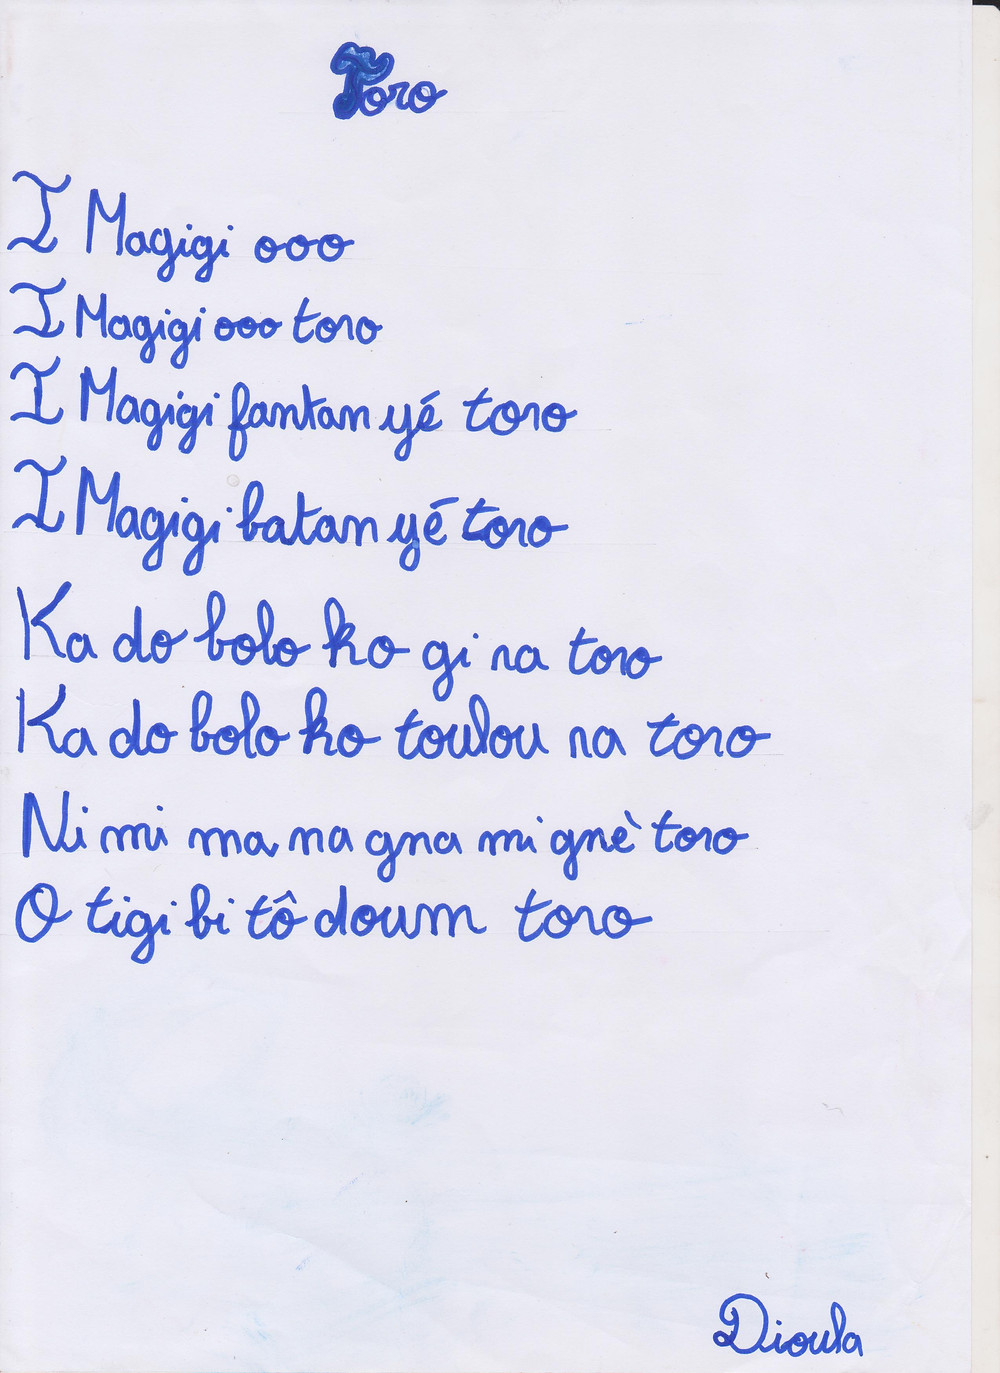 Toro
I Magigi ooo
I Magigi ooo toro
I Magigi fantan yé toro
I Magigi batan yé toro
Ka do bolo ko gi na toro
Ka do bolo ko toulou na toro
Ni mi ma na gna mi gnè toro
O tigi bi tô doum toro
Dioula